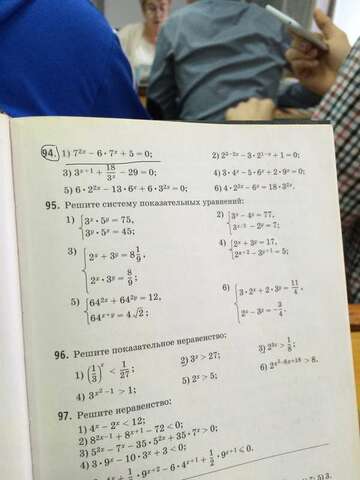 94. 1) 7^{2x} − 6 · 7^x + 5 = 0; 2) 2^{2−2x} − 3 · 2^{1−x} + 1 = 0;
3) 3^{x+1} + 18/3^x − 29 = 0; 4) 3 · 4^x − 5 · 6^x + 2 · 9^x = 0;
5) 6 · 2^{2x} − 13 · 6^x + 6 · 3^{2x} = 0; 6) 4 · 2^{2x} − 6^x = 18 · 3^{2x}.
95. Решите систему показательных уравнений:
1) { 3^x · 5^y = 75, 3^y · 5^x = 45; 2) { 3^x − 4^y = 77, 3^{x/2} − 2^y = 7;
3) { 2^x + 3^y = 8 1/9, 2^x · 3^y = 8/9; 4) { 2^x + 3^y = 17, 2^{x+2} − 3^{y+1} = 5;
5) { 64^{2x} + 64^{2y} = 12, 64^{x+y} = 4√2; 6) { 3 · 2^x + 2 · 3^y = 11/4, 2^x − 3^y = −3/4.
96. Решите показательное неравенство:
1) (1/3)^x < 1/27; 2) 3^x > 27; 3) 2^{2x} > 1/8;
4) 3^{x²−1} > 1; 5) 2^x > 5; 6) 2^{x²−6x+18} > 8.
97. Решите неравенство:
1) 4^x − 2^x < 12;
2) 8^{2x−1} + 8^{x+1} − 72 < 0;
3) 5^{2x} − 7^x − 35 · 5^{2x} + 35 · 7^x > 0;
4) 3 · 9^x − 10 · 3^x + 3 < 0;
· 4^{x+1} + 1/2 · 9^{x+2} − 6 · 4^{x+1} + 1/2 · 9^{x+1} ⩽ 0.